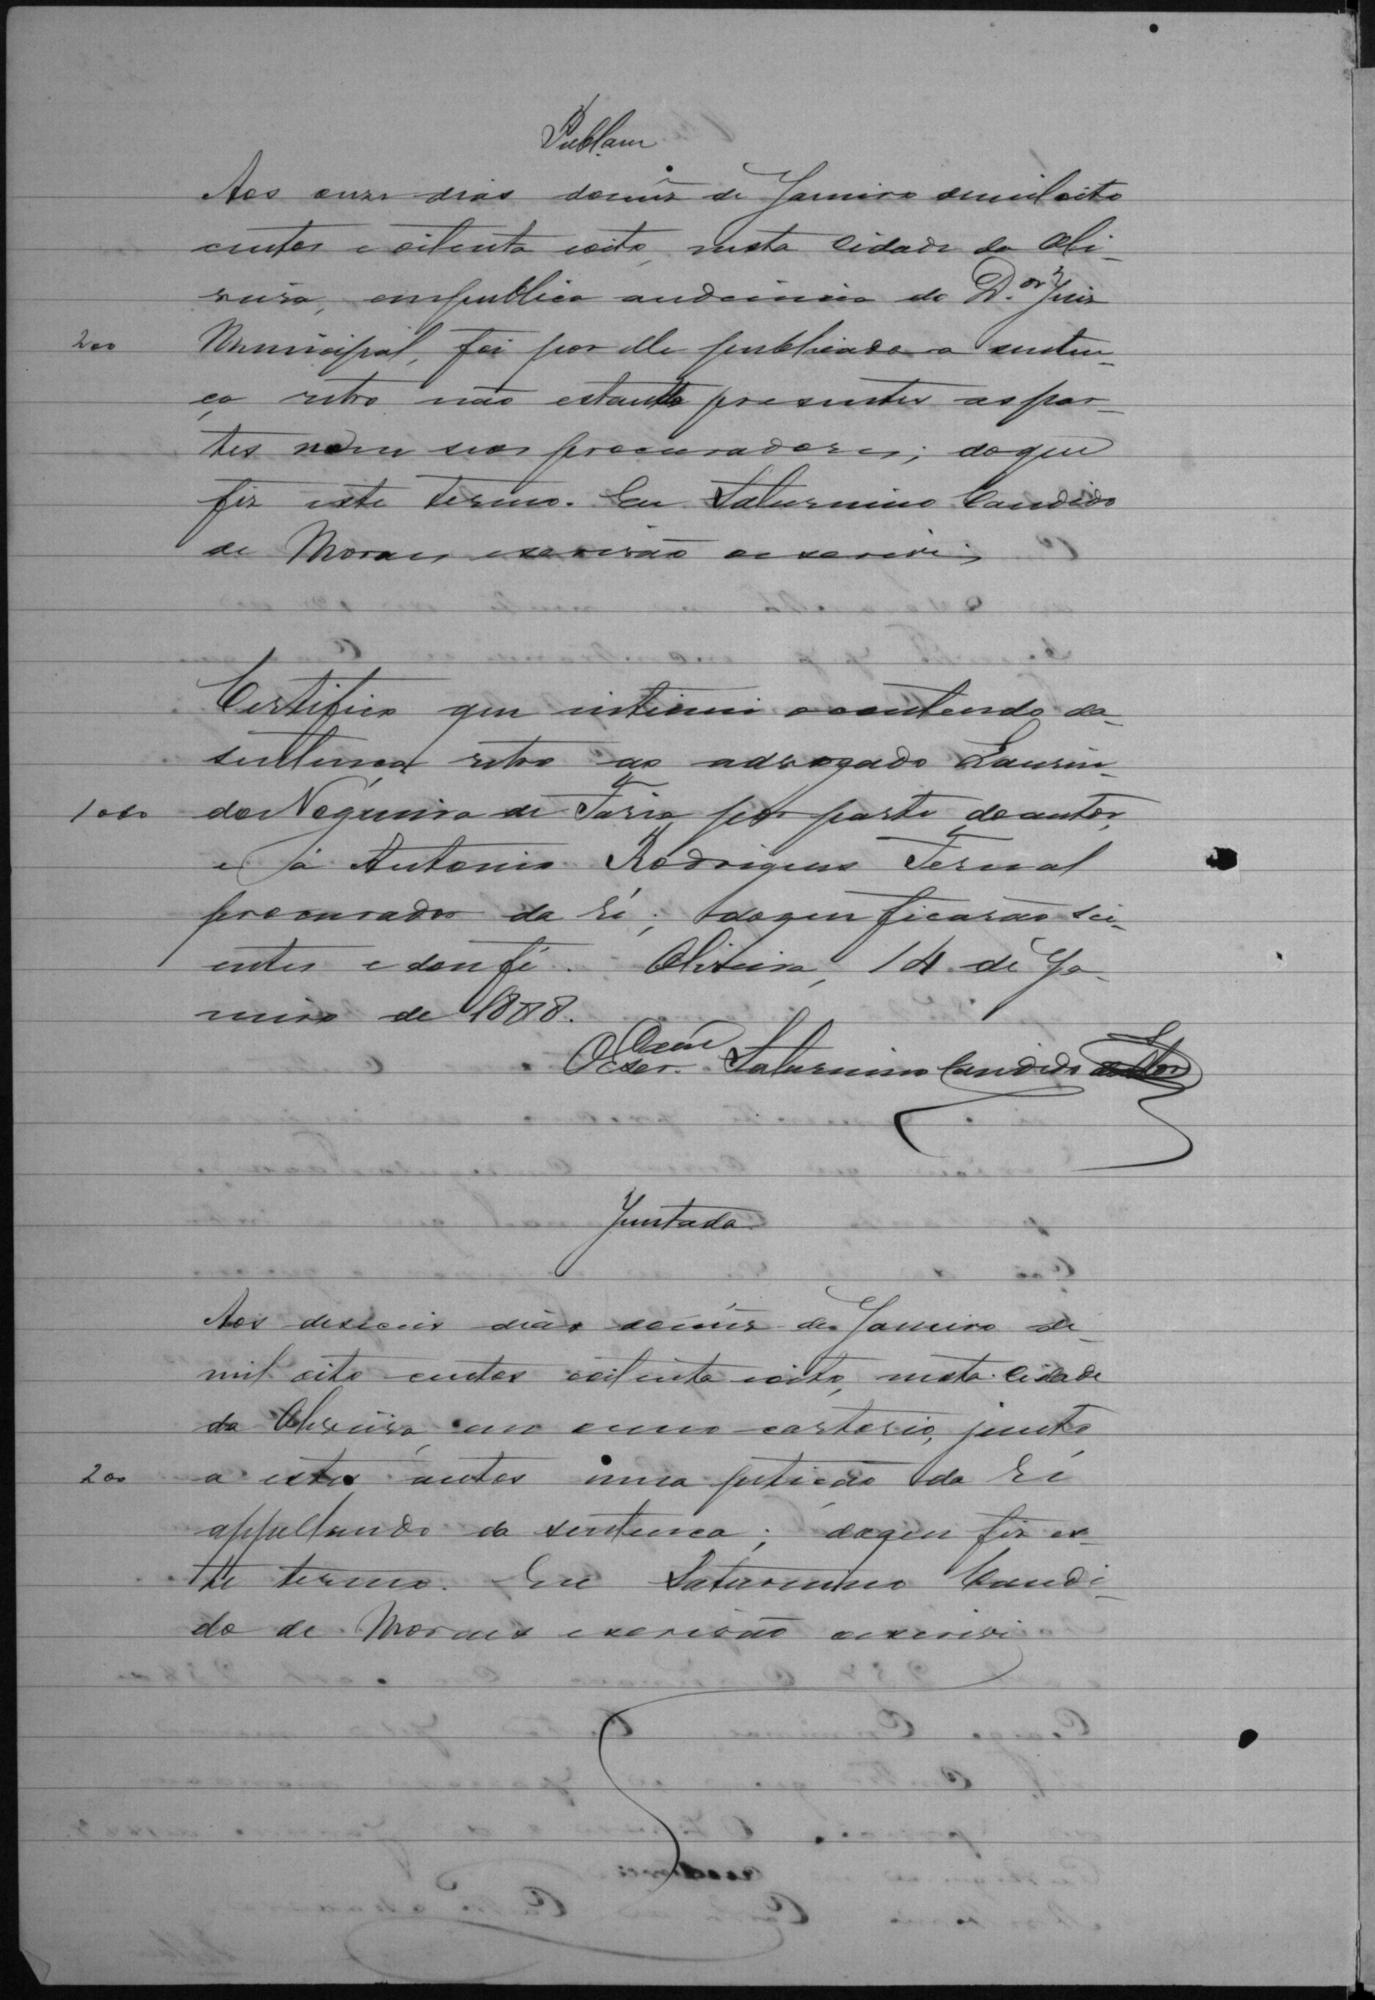 Publam
Aos onze dias do mez de Janeiro de mil oito
centos e oitenta e oito, nesta Cidade da Oli-
veira, em publica audiencia do D.or Juiz
200 Municipal, foi por elle publicada a senten-
ça retro não estando presentes as par-
tes nem seos procuradores; do que
fiz este termo. Eu Saturnino Candido
de Moraes escrivão o escrivi
Certifico que intimei o contendo da
sentença retro ao advogado Laurin-
1000 do Nogueira de Faria por parte do autor,
e a Antonio Rodrigues
procurador da Ré; do que ficarão sci-
entes e dou fé. Oliveira, 14 de Ja-
neiro de 1888.
O Escr. Saturnino Candido de Mor
Juntada
Aos deseceis dias do mez de Janeiro de
mil oito centos oitenta e oito, nesta Cidade
da Oliveira, em meo cartorio, junto
200 a estes autos uma petição da Ré
appellando da sentença; do que fiz es-
te termo. Eu Saturnino Candi-
do de Moraes escrivão o escrivi